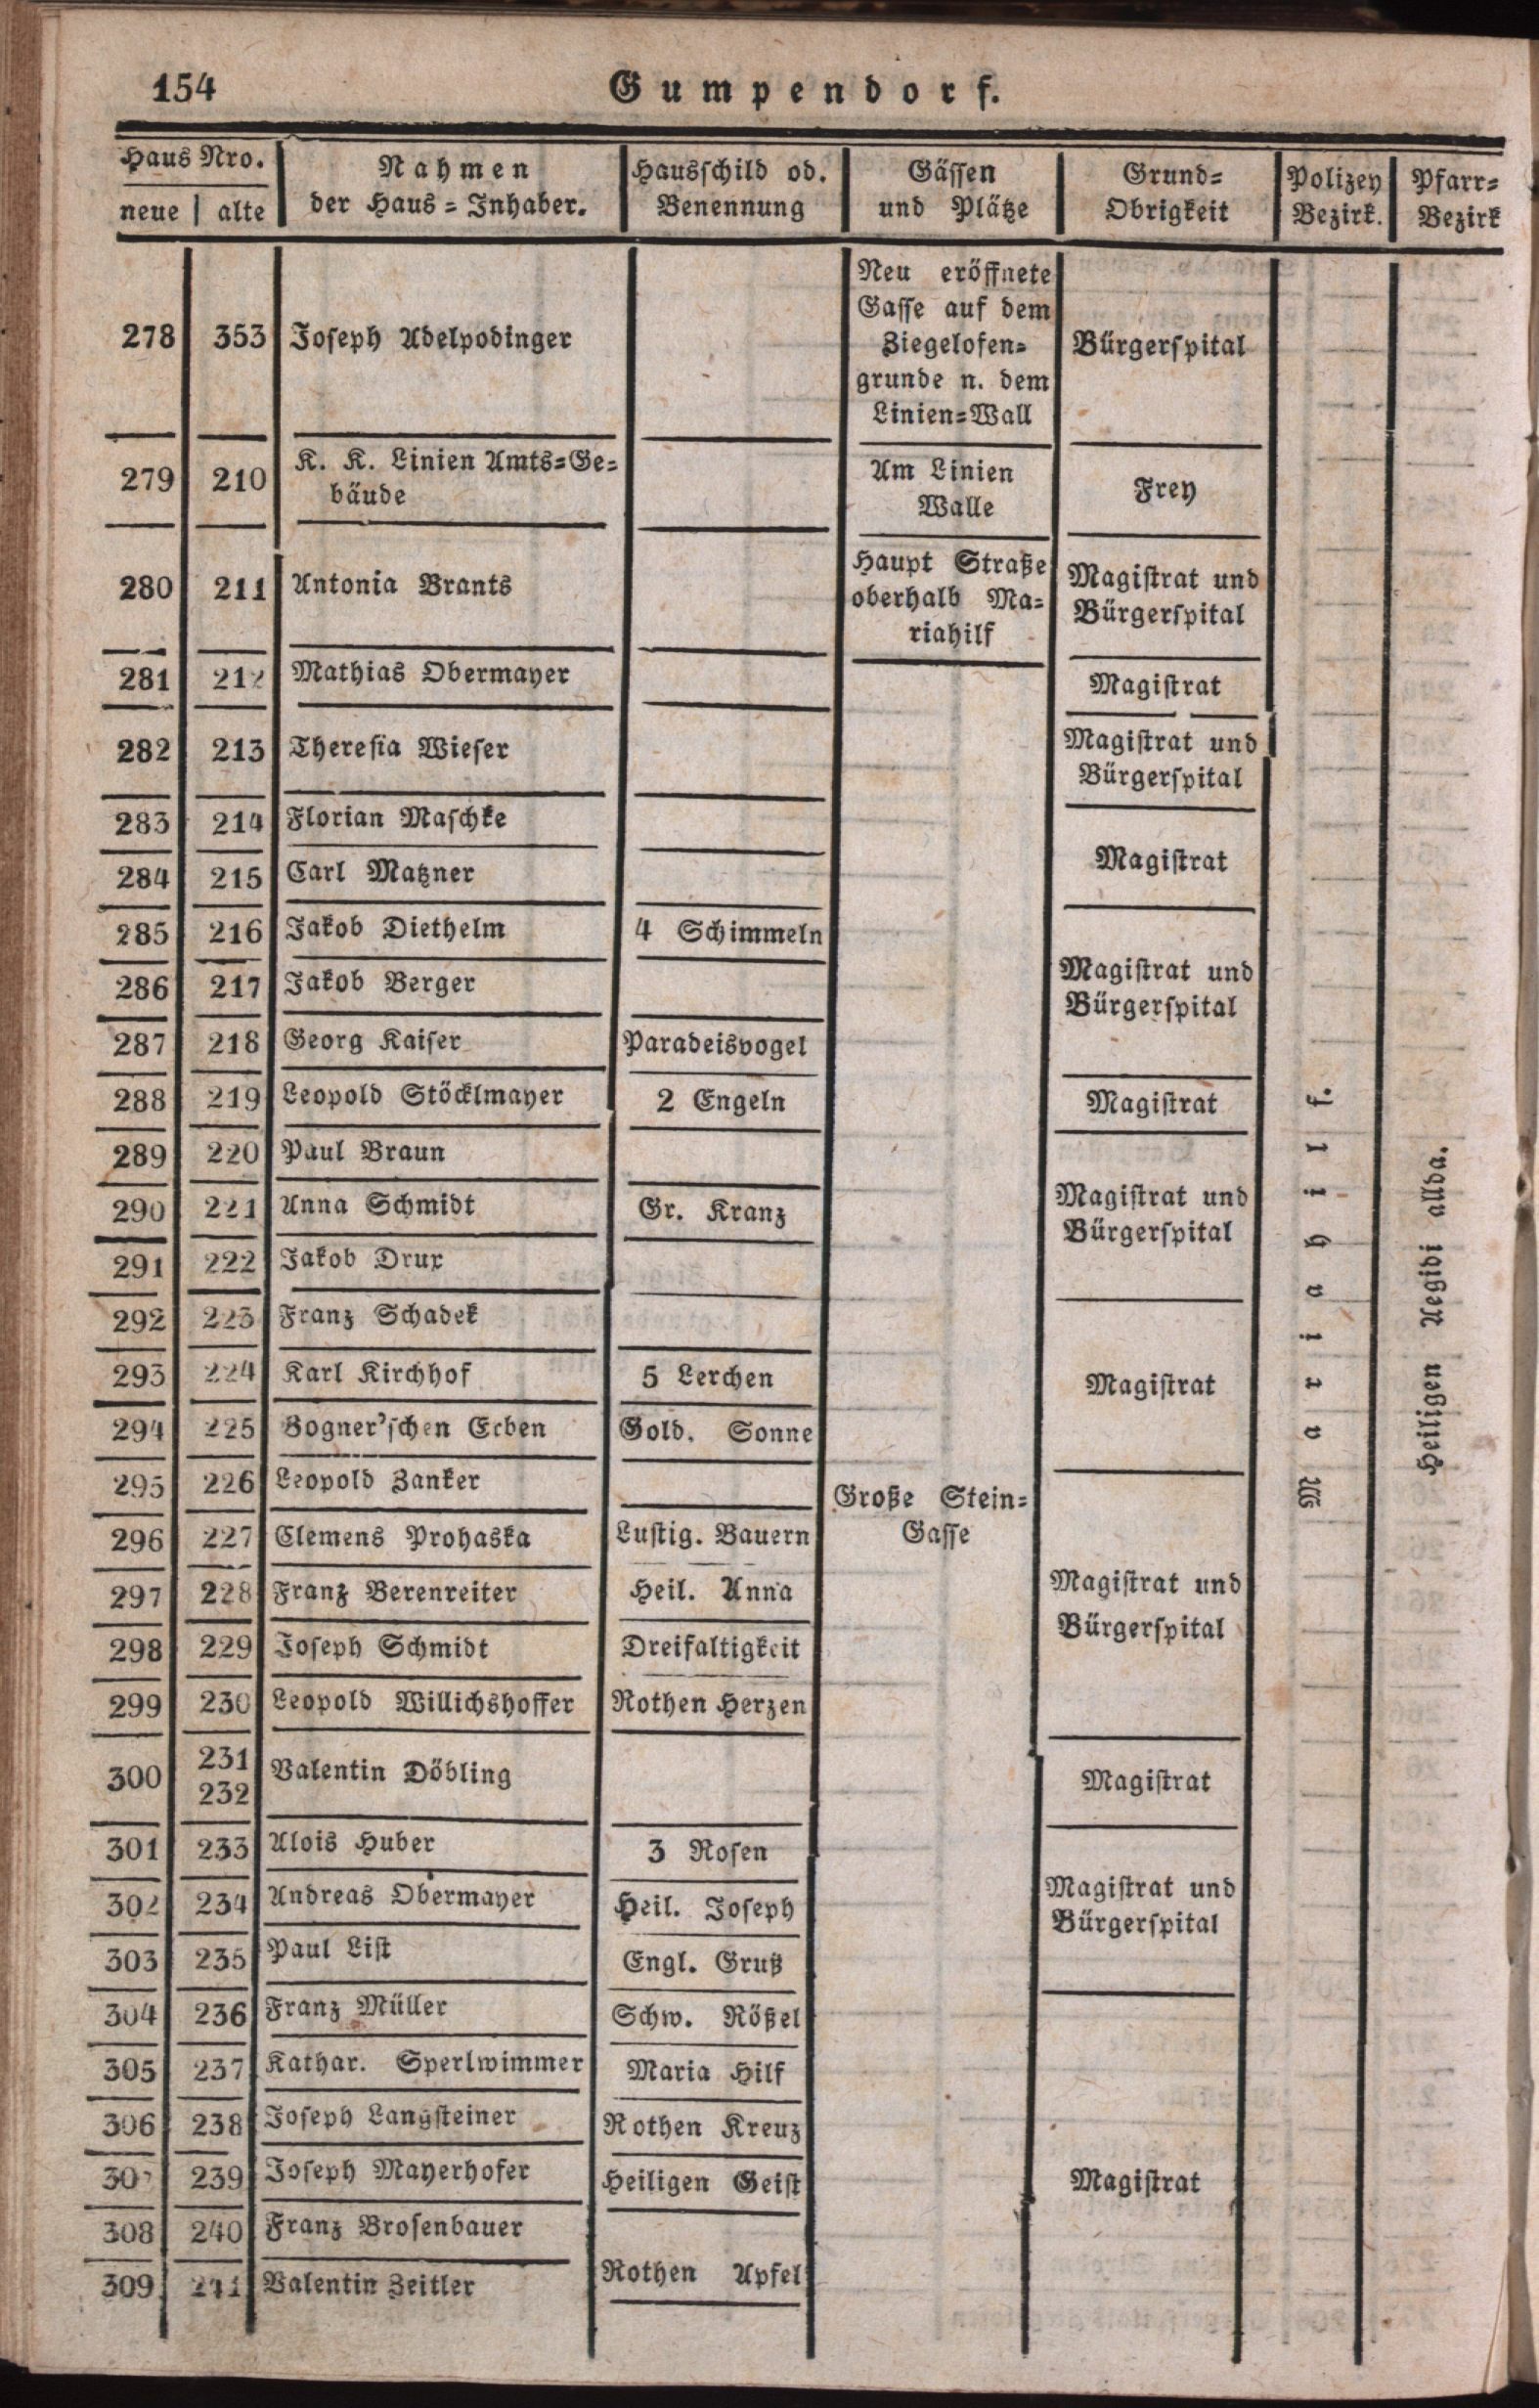 154 Gumpendorf.
Haus Nro. | Nahmen der Haus-Inhaber. | Hausschild od. Benennung | Gässen und Plätze | Grund-Obrigkeit | Polizey Bezirk. | Pfarr-Bezirk
neue | alte
278 353 Joseph Adelpodinger
Neu eröffnete
Gasse auf dem
Ziegelofen-
grunde n. dem
Linien-Wall
Bürgerspital
279 210 K. K. Linien Amts-Ge-
bäude
Am Linien
Walle
Frey
280 211 Antonia Brants
Haupt Straße
oberhalb Ma-
riahilf
Magistrat und
Bürgerspital
281 212 Mathias Obermayer
Magistrat
282 213 Theresia Wieser
Magistrat und
Bürgerspital
283 214 Florian Maschke
284 215 Carl Matzner
Magistrat
285 216 Jakob Diethelm 4 Schimmeln
286 217 Jakob Berger
287 218 Georg Kaiser Paradeisvogel
Magistrat und
Bürgerspital
288 219 Leopold Stöcklmayer 2 Engeln Magistrat
289 220 Paul Braun
290 221 Anna Schmidt Gr. Kranz
291 222 Jakob Drux
Magistrat und
Bürgerspital
292 223 Franz Schadek
293 224 Karl Kirchhof 5 Lerchen
294 225 Bogner'schen Erben Gold. Sonne
Magistrat
295 226 Leopold Zanker
296 227 Clemens Prohaska Lustig. Bauern
297 228 Franz Berenreiter Heil. Anna
298 229 Joseph Schmidt Dreifaltigkeit
299 230 Leopold Willichshoffer Rothen Herzen
Große Stein-
Gasse
Magistrat und
Bürgerspital
300 231
232 Valentin Döbling Magistrat
301 233 Alois Huber 3 Rosen
302 234 Andreas Obermayer Heil. Joseph
303 235 Paul List Engl. Gruß
Magistrat und
Bürgerspital
304 236 Franz Müller Schw. Rößel
305 237 Kathar. Sperlwimmer Maria Hilf
306 238 Joseph Langsteiner Rothen Kreuz
239 Joseph Mayerhofer Heiligen Geist
308 240 Franz Brosenbauer
309 241 Valentin Zeitler Rothen Apfel
Magistrat
Mariahilf.
Heiligen Aegidi allda.